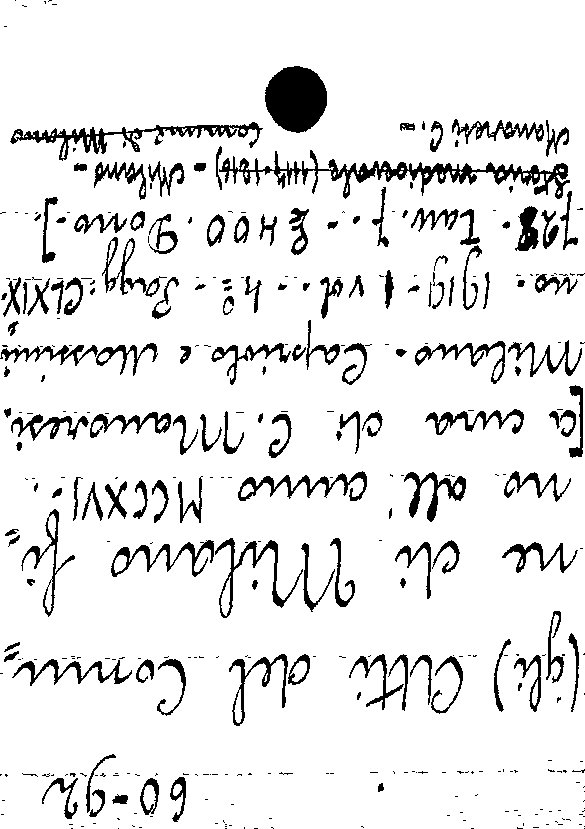 60-92
(gli) Atti del Comu=
ne di Milano fi=
no all' anno MCCXVI.
[a cura di C. Manaresi.
Milano. Capriolo e Massimi=
no. 1919 - 1 vol. - 4º - Pagg: CLXIX.
728. Tav. 7. - £ 400. Dono.].
Storia medioevale (1117-1216) - Milano -
Manaresi C. - Comune di Milano